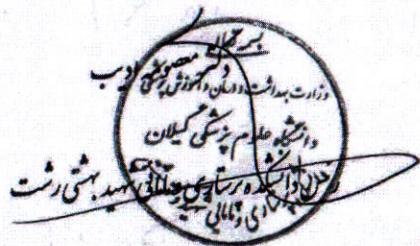 بسمه تعالی
دکتر معصومه ادیب
وزارت بهداشت، درمان و آموزش پزشکی
دانشگاه علوم پزشکی گیلان
دانشکده پرستاری و مامایی شهید بهشتی رشت
پرستاری و مامایی